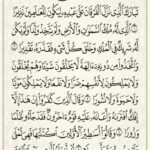 تَبَارَكَ ٱلَّذِي نَزَّلَ ٱلۡفُرۡقَانَ عَلَىٰ عَبۡدِهِۦ لِيَكُونَ لِلۡعَٰلَمِينَ نَذِيرًا
١ ٱلَّذِي لَهُۥ مُلۡكُ ٱلسَّمَٰوَٰتِ وَٱلۡأَرۡضِ وَلَمۡ يَتَّخِذۡ وَلَدٗا وَلَمۡ يَكُن
لَّهُۥ شَرِيكٞ فِي ٱلۡمُلۡكِ وَخَلَقَ كُلَّ شَيۡءٖ فَقَدَّرَهُۥ تَقۡدِيرٗا ٢
وَٱتَّخَذُواْ مِن دُونِهِۦٓ ءَالِهَةٗ لَّا يَخۡلُقُونَ شَيۡـٔٗا وَهُمۡ يُخۡلَقُونَ
وَلَا يَمۡلِكُونَ لِأَنفُسِهِمۡ ضَرّٗا وَلَا نَفۡعٗا وَلَا يَمۡلِكُونَ مَوۡتٗا
وَلَا حَيَوٰةٗ وَلَا نُشُورٗا ٣ وَقَالَ ٱلَّذِينَ كَفَرُوٓاْ إِنۡ هَٰذَآ إِلَّآ
إِفۡكٌ ٱفۡتَرَىٰهُ وَأَعَانَهُۥ عَلَيۡهِ قَوۡمٌ ءَاخَرُونَۖ فَقَدۡ جَآءُو ظُلۡمٗا
وَزُورٗا ٤ وَقَالُوٓاْ أَسَٰطِيرُ ٱلۡأَوَّلِينَ ٱكۡتَتَبَهَا فَهِيَ تُمۡلَىٰ